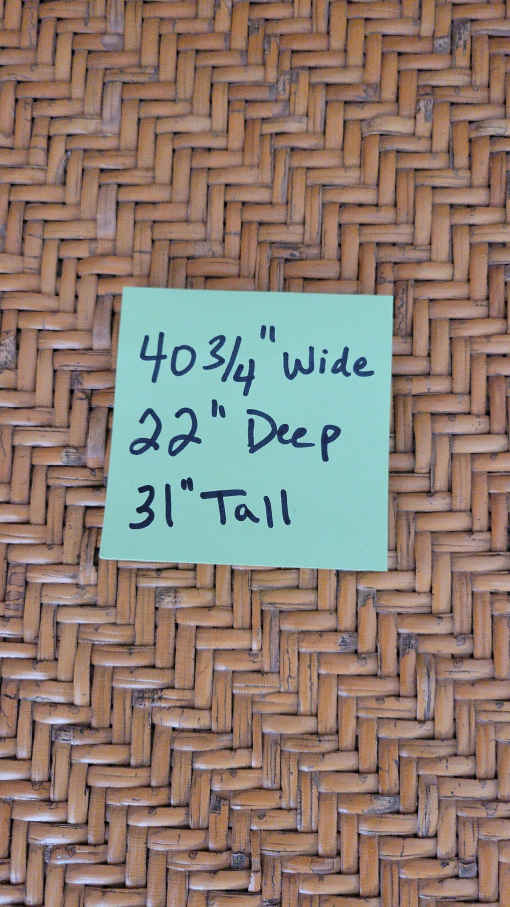 40 3/4" Wide
22" Deep
31" Tall